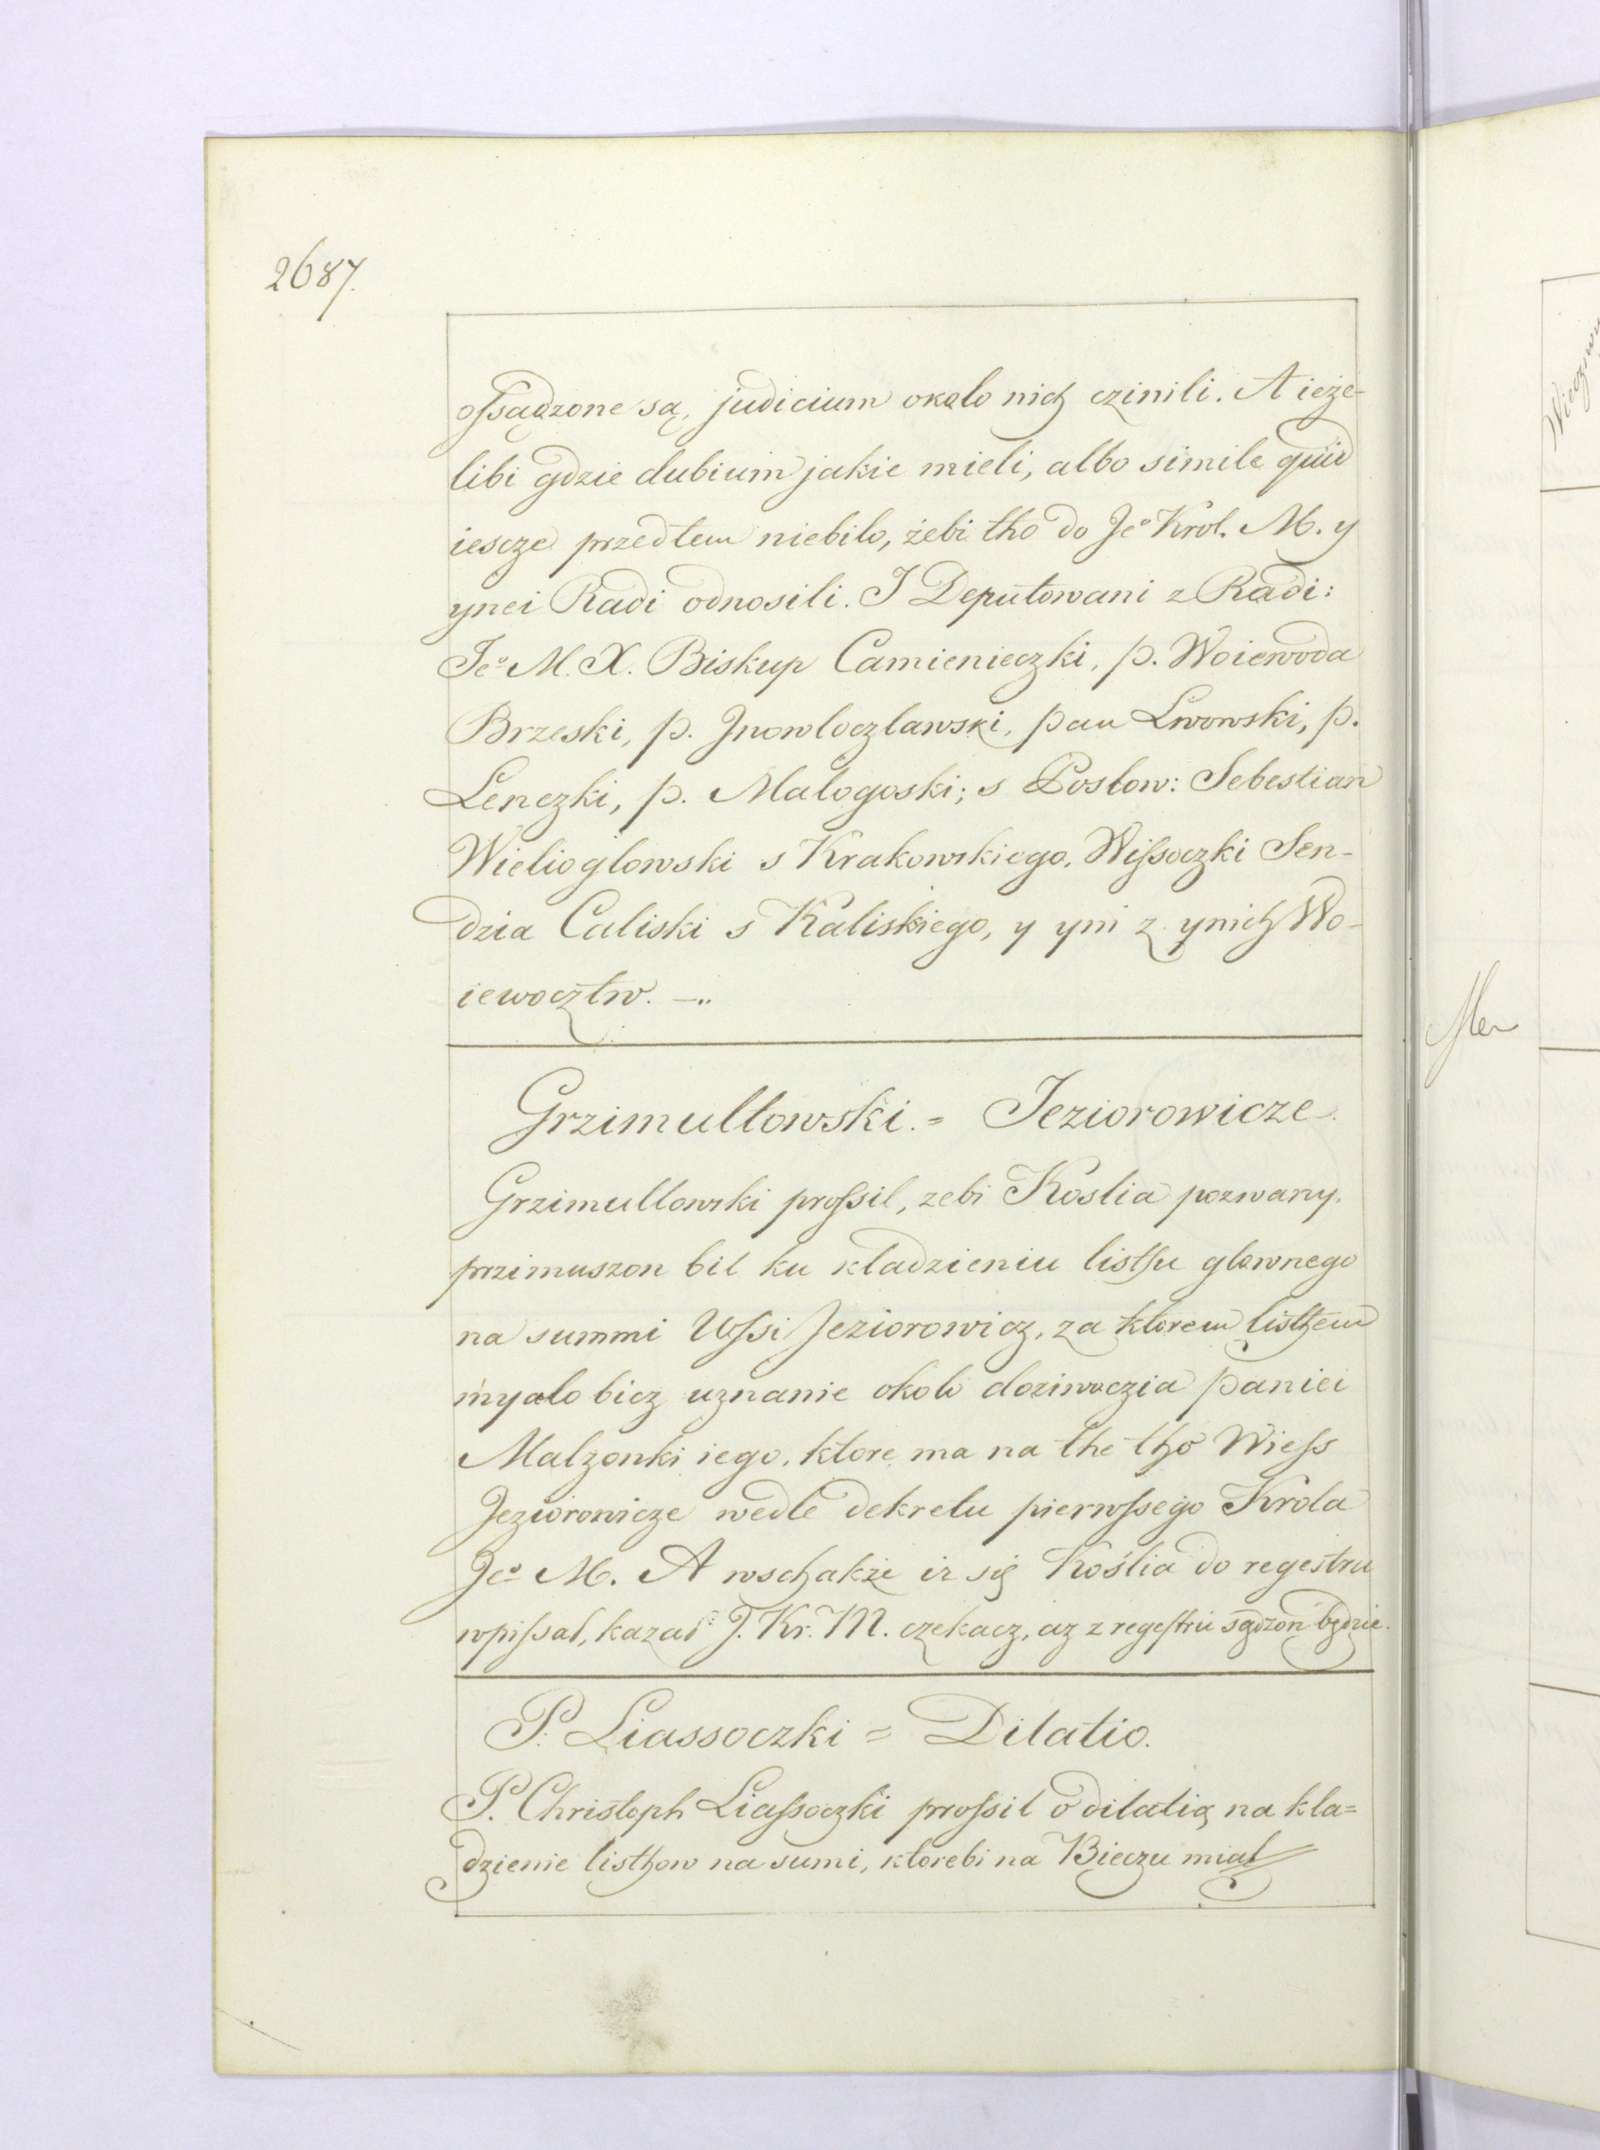 2687.
ossądzone są, judicium około nich czinili. A ieże-
libi gdzie dubium jakie mieli, albo simile quid
iescze przedtem niebilo, żebi tho do Jeº Krol. M. y
ynei Radi odnosili. I Deputowani z Radi:
Jeº M. X. Biskup Camienieczki, p. Woiewoda
Brzeski, p. Jnowloczlawski, pan Lwowski, p.
Lenczki, p. Malogoski; s Posłow: Sebestian
Wielioglowski s Krakowskiego, Wissoczki Sen-
dzia Caliski s Kaliskiego, y yni z ynich Wo-
iewocztw. —..
Grzimultowski. = Jeziorowicze.
Grzimultowski prossil, zebi Koslia pozwany,
przimuszon bil ku kładzieniu listhu glownego
na summi Wssi Jeziorowicz, za ktorem listhem
myalo bicz uznanie okolo doziwoczia paniei
Malzonki iego, ktore ma na the tho Wiess
Jeziorowicze wedle dekretu pierwssego Krola
Jeº M. A wschakże iz się Koślia do regestru
wpissał, kazał J. Kr. M. czekacz, az z regestru sądzon będzie.
P. Liassoczki = Dilatio.
P. Christoph Liassoczki prossil o dilatią na kla=
dzienie listhow na sumi, ktorebi na Bieczu miał
Mer